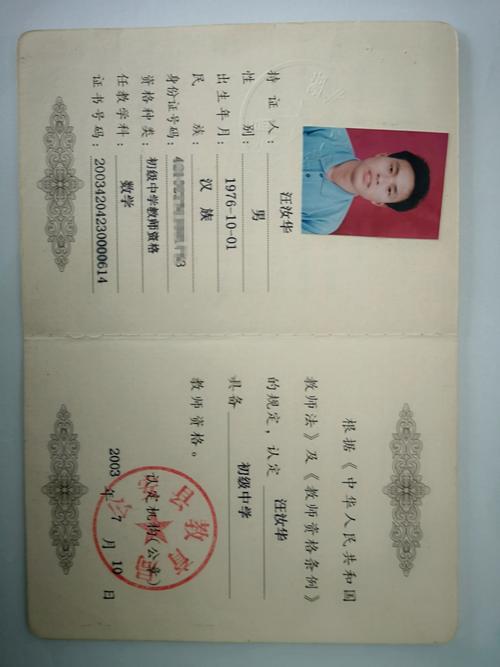 持证人：汪汝华
性 别：男
出生年月：1976-10-01
民 族：汉 族
身份证号码：
资格种类：初级中学教师资格
任教学科：数学
证书号码：20034204230000614
根据《中华人民共和国
教师法》及《教师资格条例》
的规定，认定 汪汝华
具备 初级中学
教师资格。
认定机构(公章)
2003 年 7 月 10 日